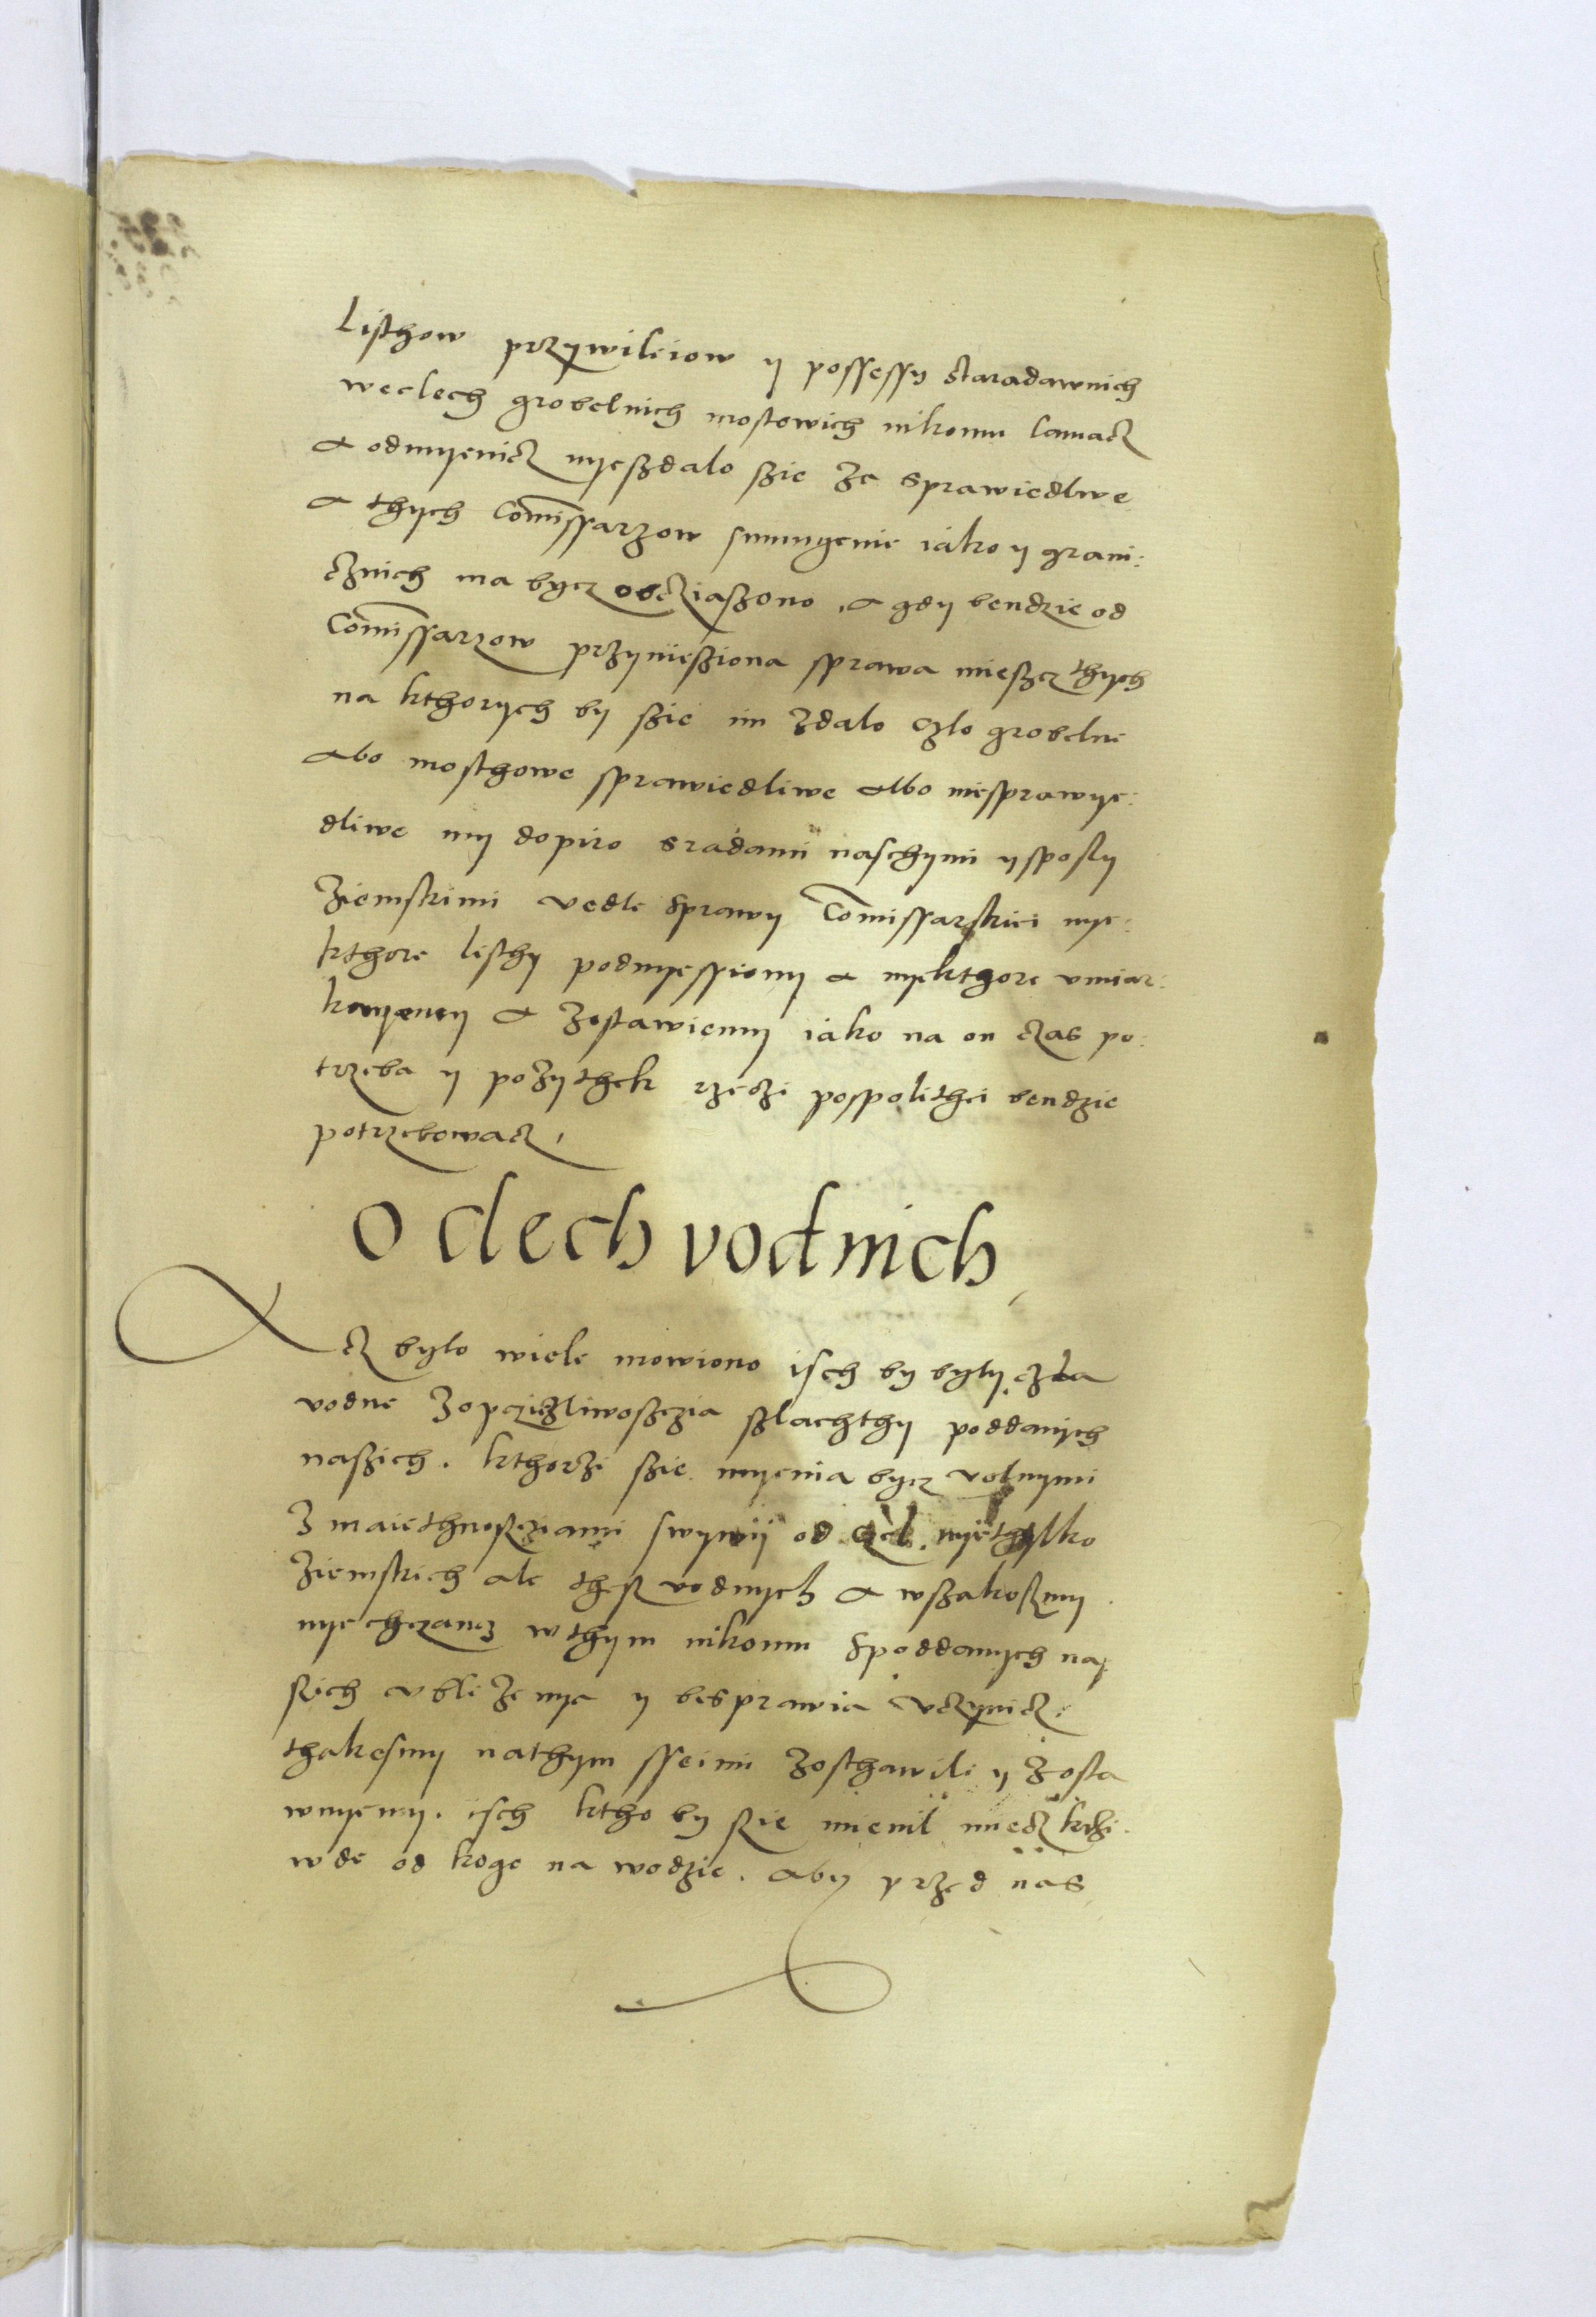 Listhow przywileiow y possessy staradawnich
weclech grobelnich mostowich nikomu lamacz
a odmyenicz nyeszdalo szie ze sprawiedlwe
a thych Comissarzow sumnyenie iako y grani:
cznich ma bycz obcziaszono, a gdy bendzie od
Comissarzow przyniesziona sprawa mieszcz thych
na kthorych by szie im zdalo czlo grobelne
abo mosthowe sprawiedliwe albo niesprawye:
dliwe my dopiro sradami naschymi ysposly
Ziemskimi vedle sprawy Comissarskiei nye:
kthore listhy podnyessiemy a nyekthore vmiar:
kuyemy a zostawiemy iako na on czas po:
trzeba y pozythek rzeczi pospolithei bendzie
potrzebowacz,
O clech vodnich,
Acz bylo wiele mowiono isch by byly czla
vodne zopcziezliwoszczia szlachthy poddanych
naszich. kthorzi szie myenia bycz volnymi
z maiethnoszcziami swymi od czel. nyethylko
Ziemskich ale thesz vodnych a wszakoszmy
nyechczancz wthym nikomu spoddanych na:
szich vblizenye y besprawia vczynicz:
thakesmy nathym sseimi zosthawili y zosta
wuyemy. isch ktho by szie mienil miecz krzi:
wde od kogo na wodzie. aby przed nas